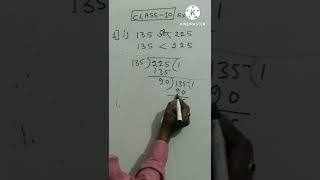 CLASS-10
1] i) 135 225
135 < 225
135) 225 (1
135
90) 135 (1
90
KINEMASTER